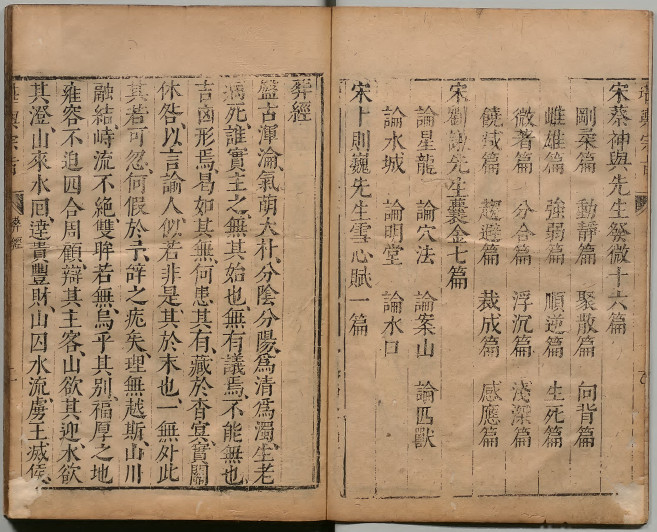 宋蔡神與先生發微十六篇
剛柔篇 動靜篇 聚散篇 向背篇
雌雄篇 強弱篇 順逆篇 生死篇
微著篇 分合篇 浮沉篇 淺深篇
饒減篇 趨避篇 裁成篇 感應篇
宋劉謙先生囊金七篇
論星龍 論穴法 論案山 論四獸
論水城 論明堂 論水口
宋卜則巍先生雪心賦一篇
葬經
盤古渾淪氣萌大朴分陰分陽爲清爲濁生老
病死誰實主之無其始也無有議焉不能無也
吉凶形焉曷如其無何患其有藏於杳冥實關
休咎以言諭人似若非是其於末也一無外此
其若可忽何假於予辭之庬矣理無越斯山川
融結峙流不絕雙眸若無烏乎其別福厚之地
雍容不迫四合周顧辯其主客山欲其迎水欲
其澄山來水囘逹貴豐財山囚水流虜王滅侯
葬經